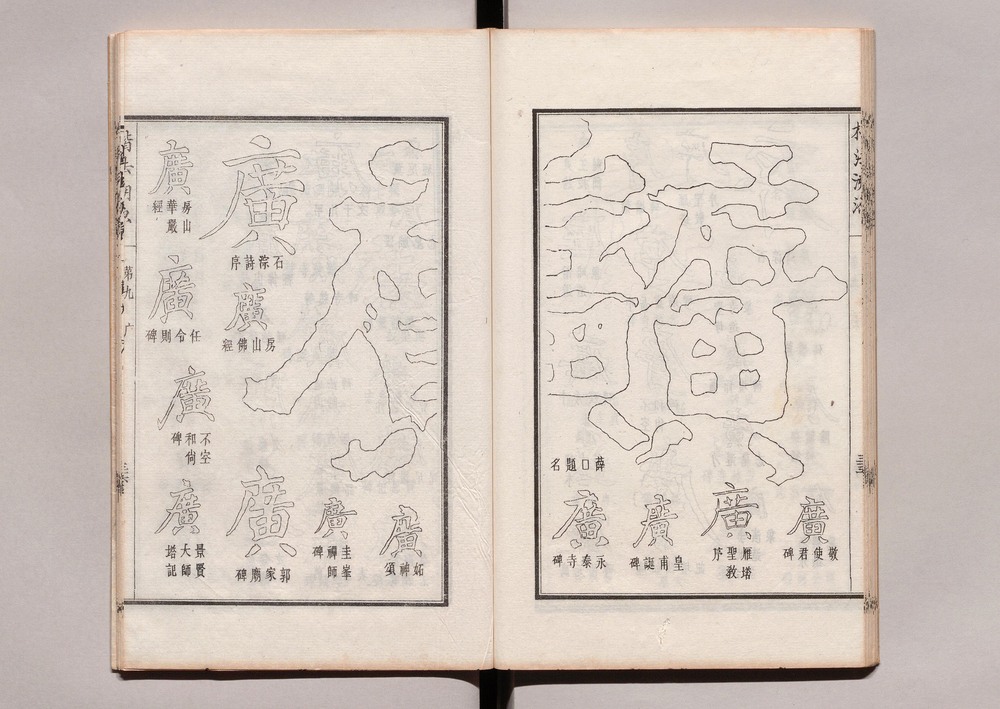 楷法溯源
廣
廣 敬使君碑
廣 雁塔聖教序
廣 皇甫誕碑
薛口題名
廣 永泰寺碑
廣 妬神頌
廣 圭峯禪師碑
廣 石淙詩序
廣 房山佛經
廣 郭家廟碑
廣 房山華嚴經
廣 任令則碑
廣 不空和尚碑
廣 景賢大師塔記
第九 广